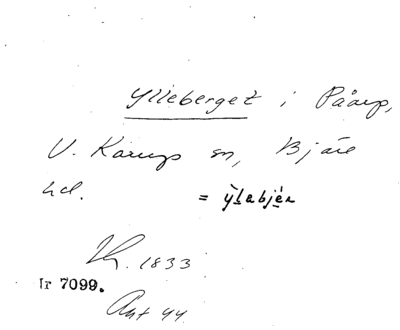 Ylleberget i Påarp,
V. Karups sn, Bjäre
hd. = ỳlabjèr
Th. 1833
Nr 7099.
Ant 44